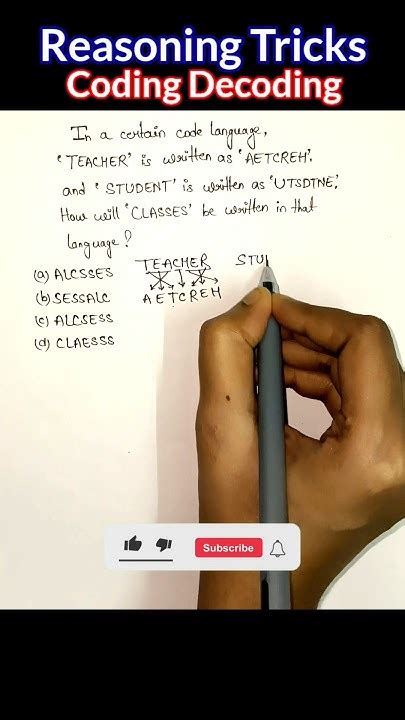 Reasoning Tricks
Coding Decoding
In a certain code language,
'TEACHER' is written as 'AETCREH'.
and 'STUDENT' is written as 'UTSDTNE',
How will 'CLASSES' be written in that
language?
(a) ALCSSES
(b) SESSALC
(c) ALCSESS
(d) CLAESSS
TEACHER
AETCREH
STU
Subscribe